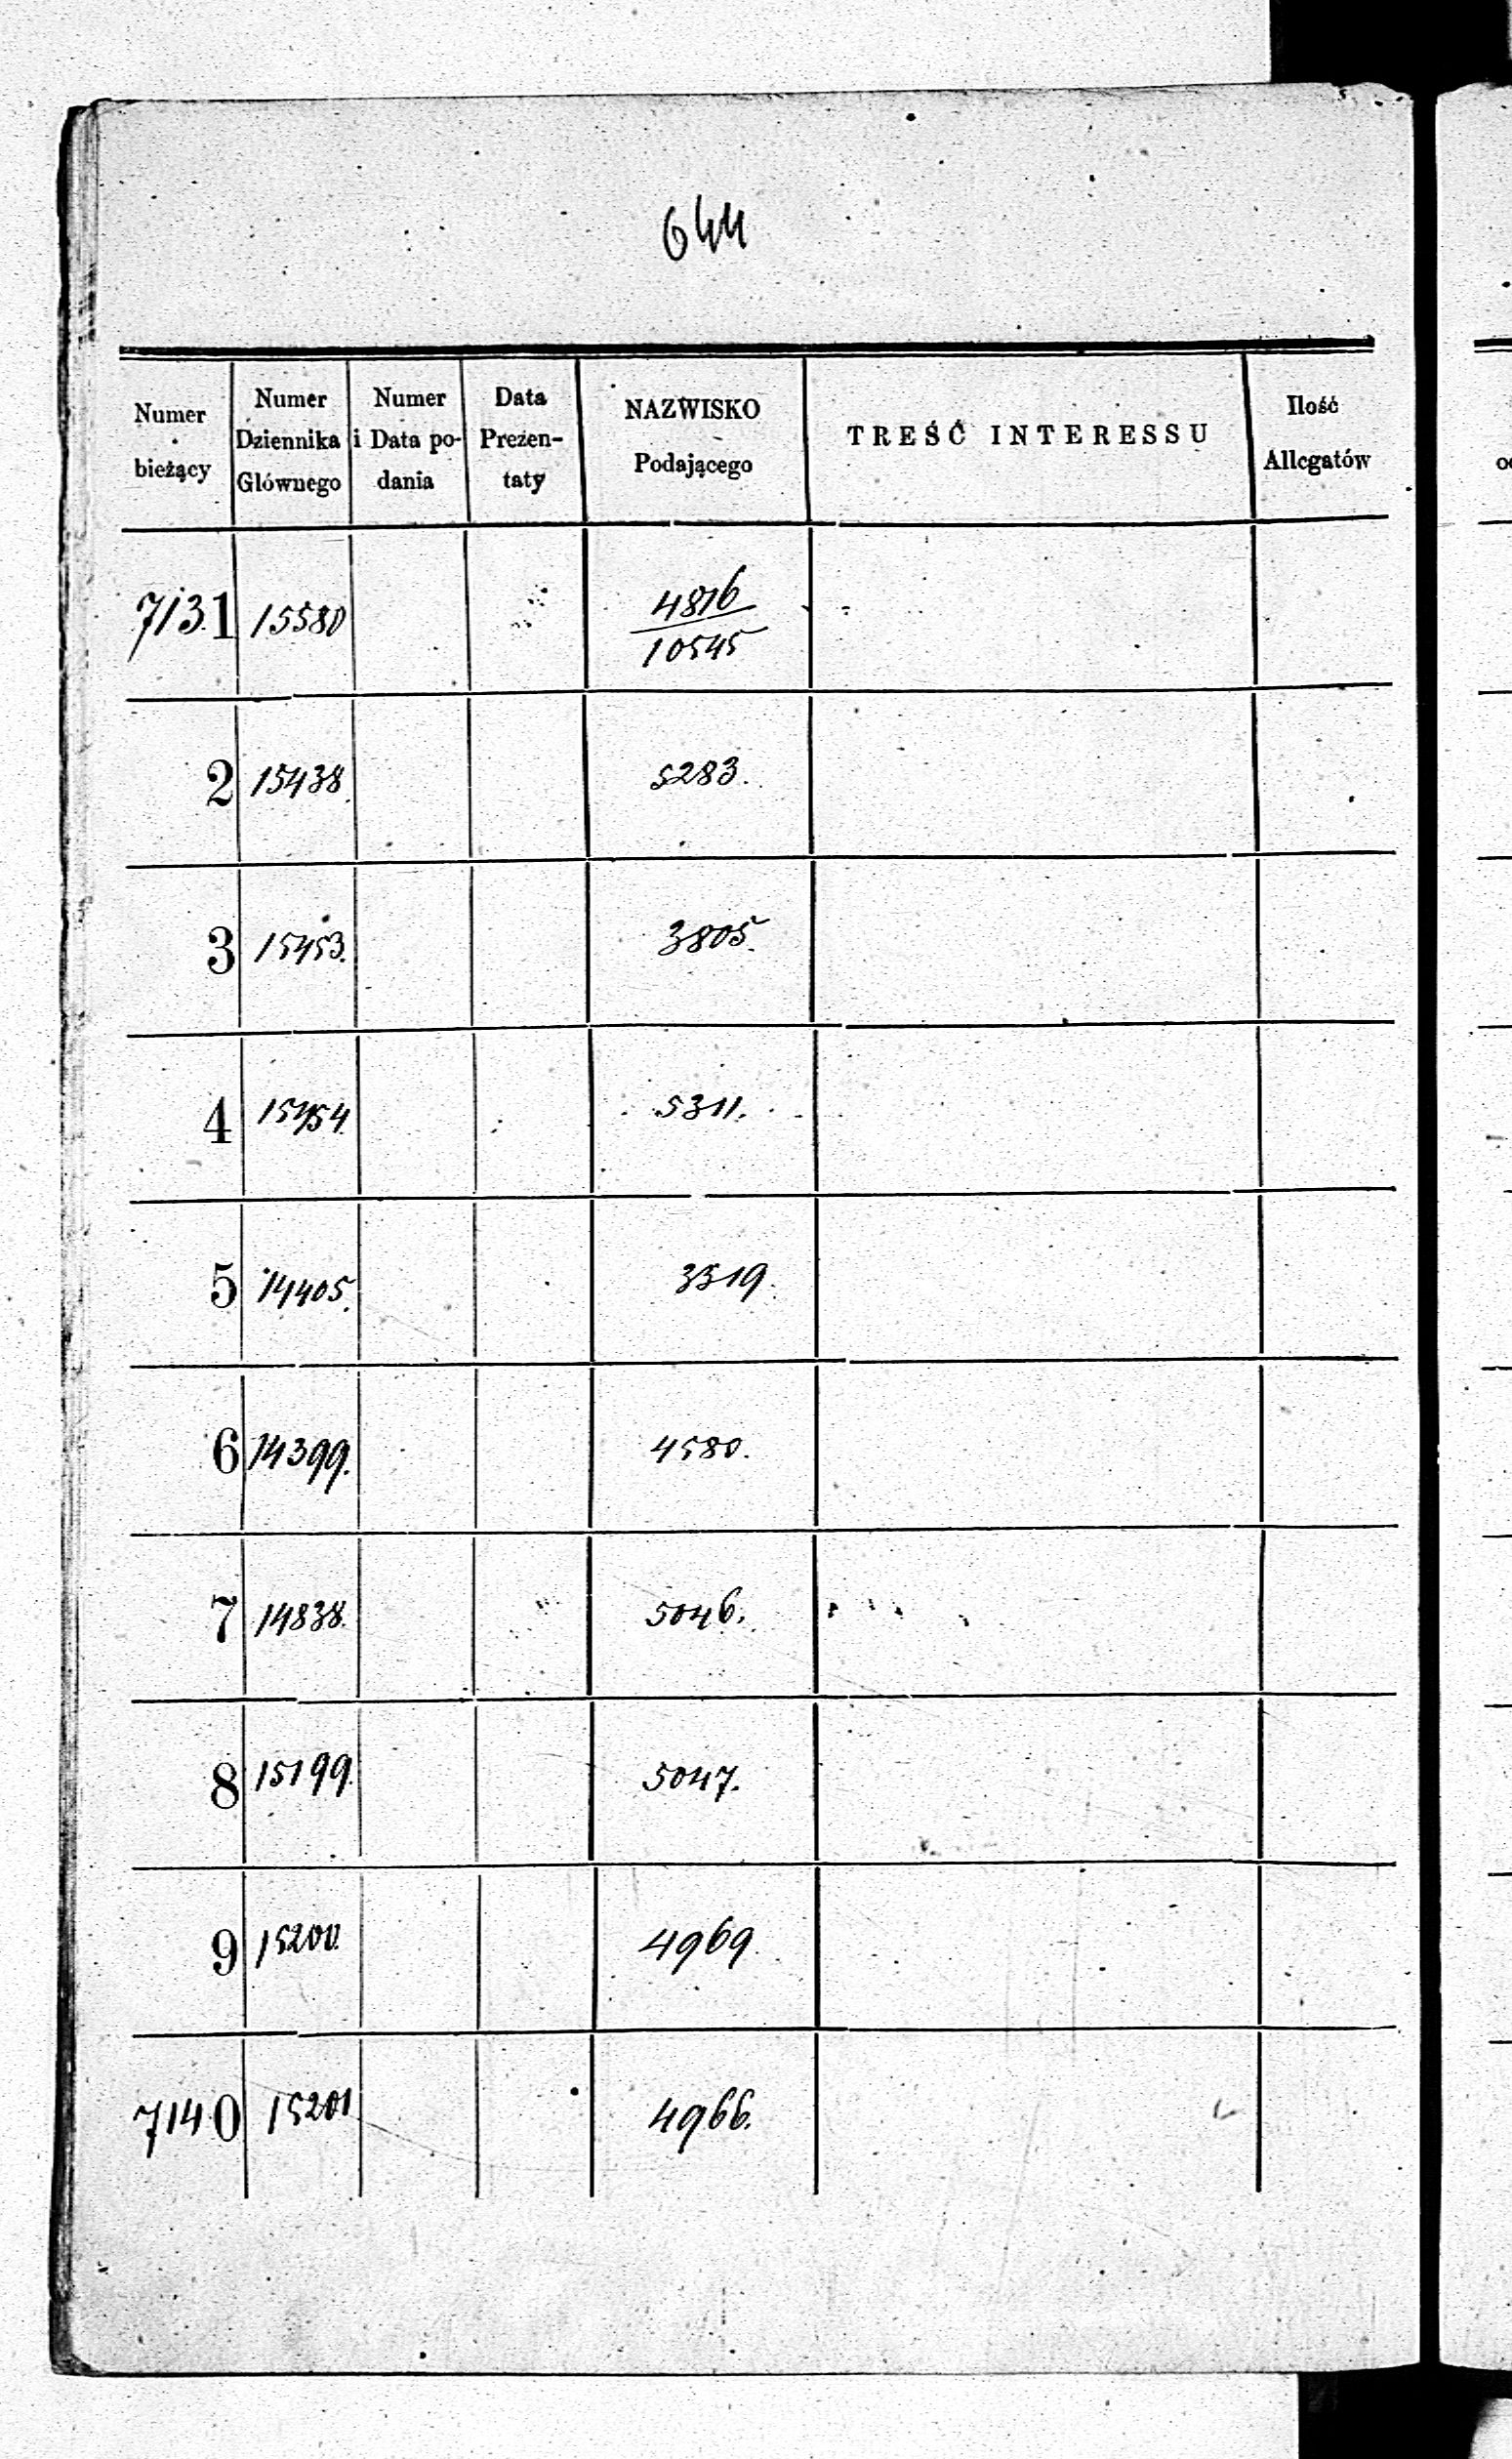 644
Numer bieżący | Numer Dziennika Głównego | Numer i Data podania | Data Prezentaty | NAZWISKO Podającego | TREŚĆ INTERESSU | Ilość Allegatów
7131 15580 4816/10545
2 15438. 5283.
3 15453. 3805.
4 15454. 5311.
5 14405. 3319.
6 14399. 4580.
7 14838. 5046.
8 15199. 5047.
9 15200. 4969.
7140 15201 4966.